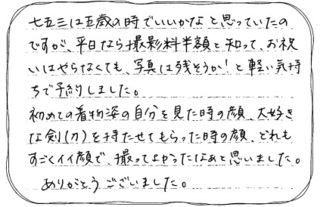 七五三は五歳の時でいいかなと思っていたの
ですが、平日なら撮影料半額と知って、お祝
いはやらなくても、写真は残そうか!と軽い気持
ちで予約しました。
初めての着物姿の自分を見た時の顔、大好き
な剣(刀)を持たせてもらった時の顔、どれも
すごくイイ顔で、撮ってよかったなぁと思いました。
ありがとうございました。